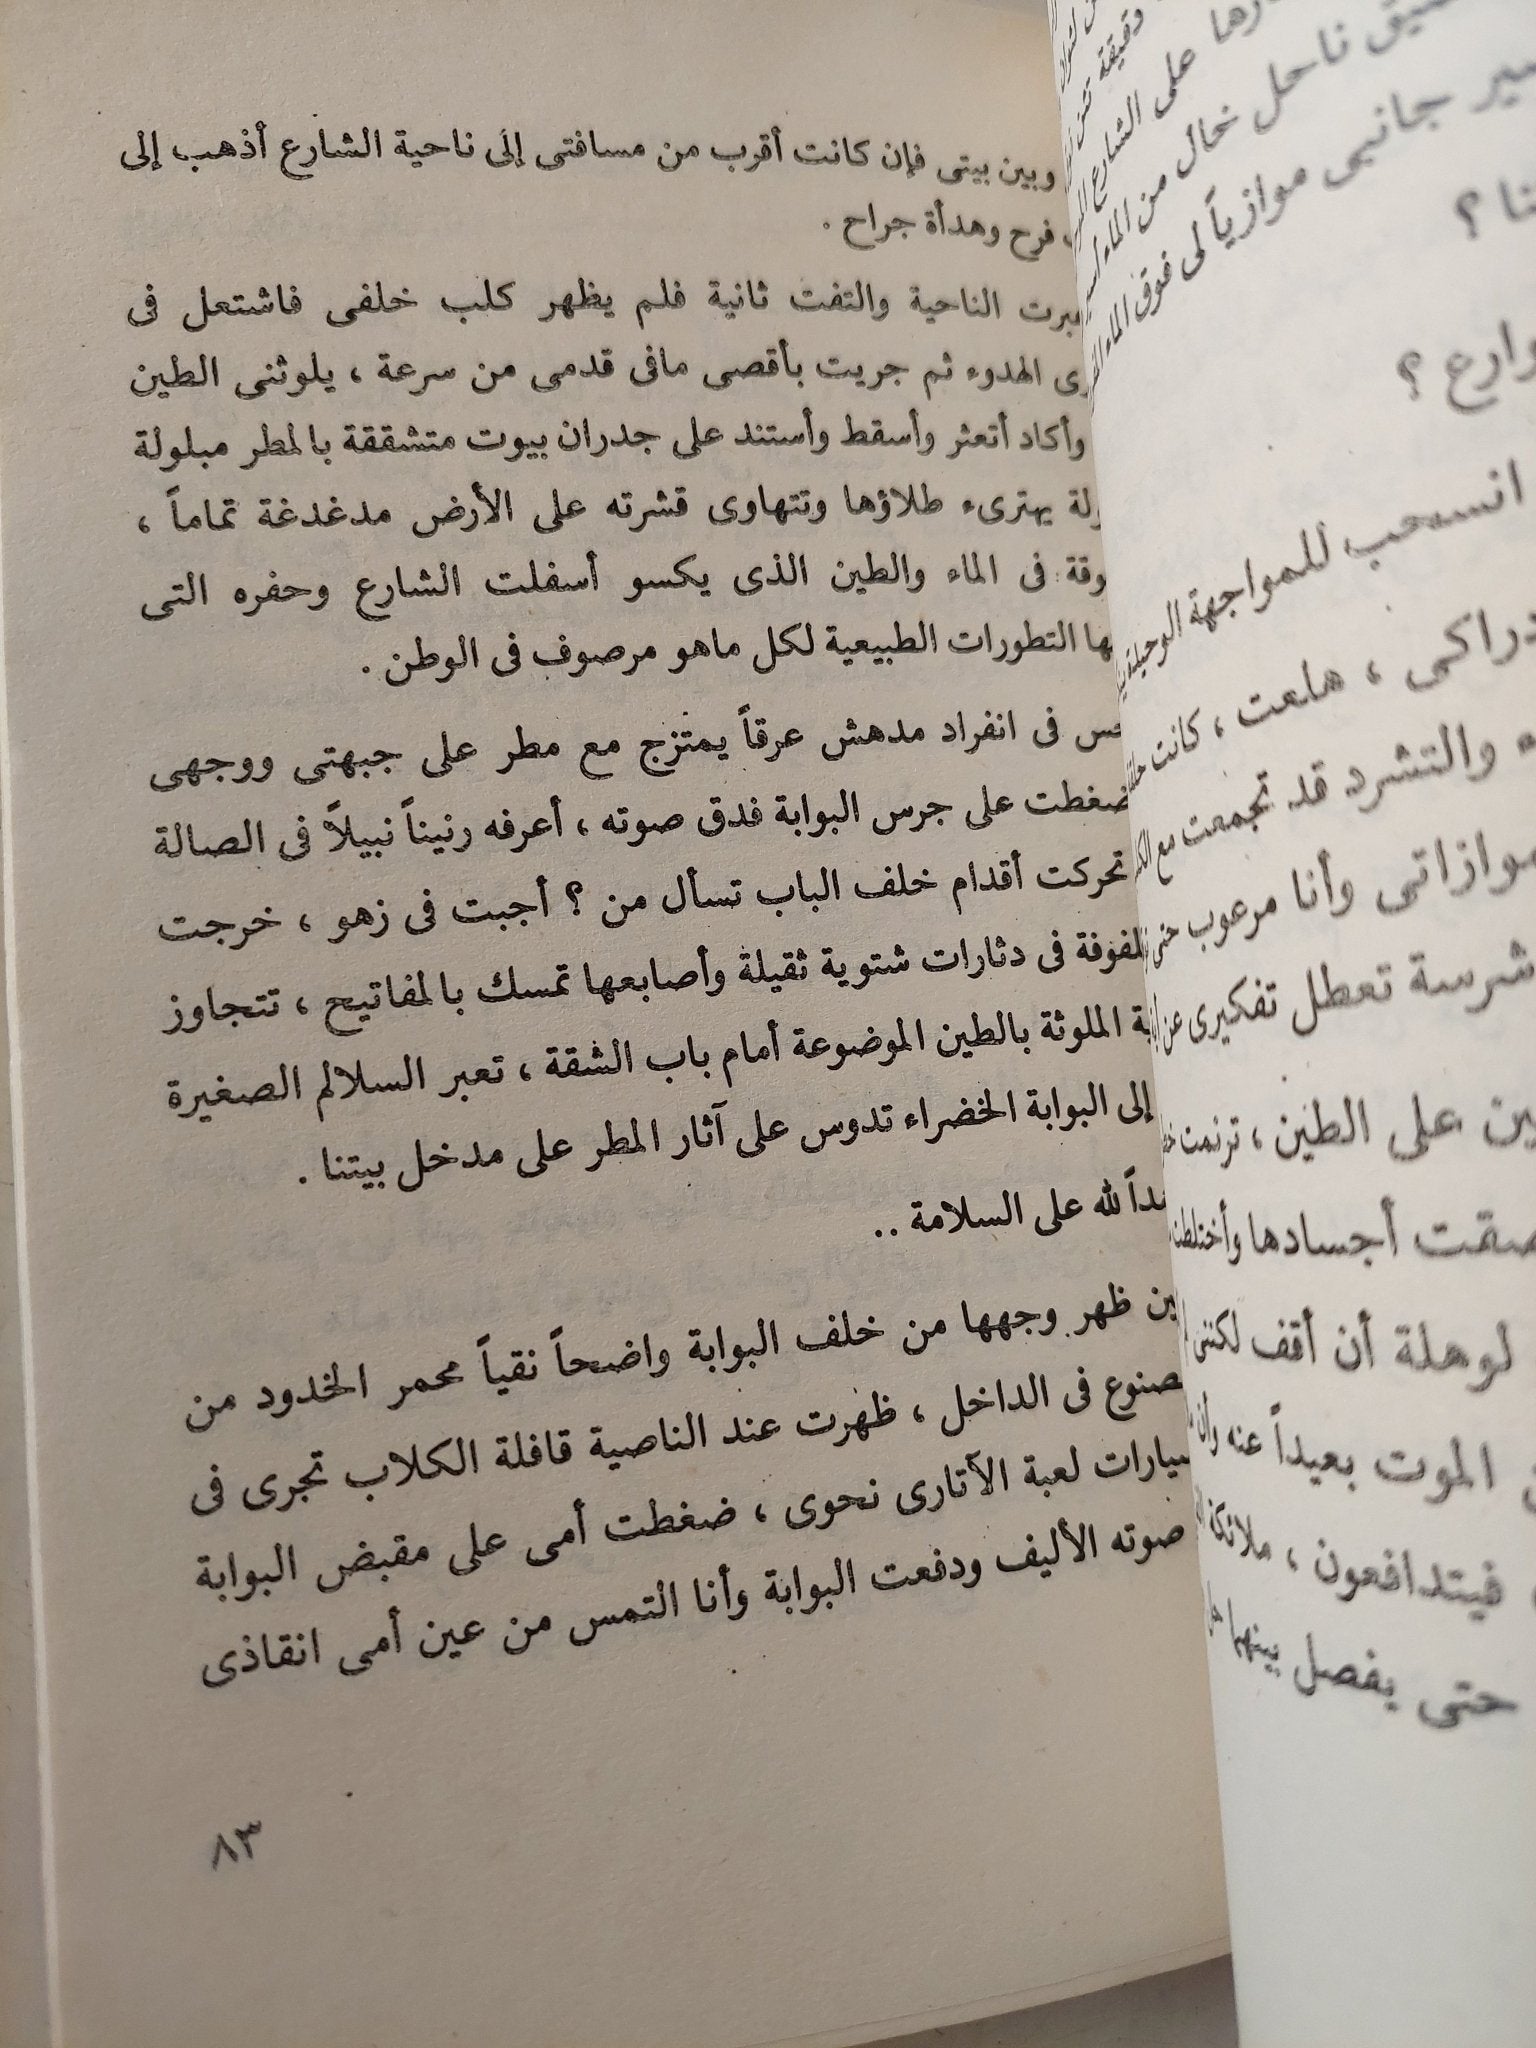 وبين بيتى فإن كانت أقرب من مسافتى إلى ناحية الشارع أذهب إلى
فرح وهدأة جراح .
الناحية والتفت ثانية فلم يظهر كلب خلفى فاشتعل فى
الهدوء ثم جريت بأقصى مافى قدمى من سرعة ، يلوثنى الطين
وأكاد أتعثر وأسقط وأستند على جدران بيوت متشققة بالمطر مبلولة
يهترىء طلاؤها وتتهاوى قشرته على الأرض مدغدغة تماماً ،
فى الماء والطين الذى يكسو أسفلت الشارع وحفره التى
التطورات الطبيعية لكل ماهو مرصوف فى الوطن .
فى انفراد مدهش عرقاً يمتزج مع مطر على جبهتى ووجهى
ضغطت على جرس البوابة فدق صوته ، أعرفه رنيناً نبيلاً فى الصالة
تحركت أقدام خلف الباب تسأل من ؟ أجبت فى زهو ، خرجت
فى دثارات شتوية ثقيلة وأصابعها تمسك بالمفاتيح ، تتجاوز
الملوثة بالطين الموضوعة أمام باب الشقة ، تعبر السلالم الصغيرة
إلى البوابة الخضراء تدوس على آثار المطر على مدخل بيتنا .
لله على السلامة ..
ظهر وجهها من خلف البوابة واضحاً نقياً محمر الخدود من
فى الداخل ، ظهرت عند الناصية قافلة الكلاب تجرى فى
لعبة الآتارى نحوى ، ضغطت أمى على مقبض البوابة
صوته الأليف ودفعت البوابة وأنا التمس من عين أمى انقاذى
٨٣
على الشارع
ناحل خال من الماء
جانبى موازياً لى فوق الماء
؟
؟
انسحب للمواجهة الوحيلة
، هلعت ، كانت
والتشرد قد تجمعت مع
وأنا مرعوب حتى
شرسة تعطل تفكيرى عن
على الطين ، ترنمت
أجسادها وأختلطت
لوهلة أن أقف لكننى
الموت بعيداً عنه وأن
فيتدافعون ،
حتى يفصل بينهما